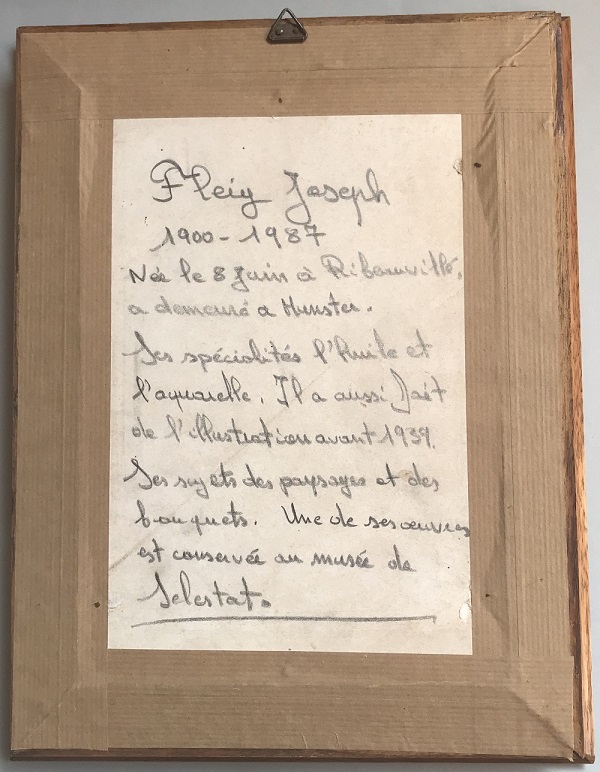 Fleig Joseph
1900 - 1987
Née le 8 Juin à Ribeauvillé,
a demeuré a Munster.
Ses spécialités l'huile et
l'aquarelle. Il a aussi fait
de l'illustration avant 1939.
Ses sujets des paysages et des
bouquets. Une de ses œuvres
est conservée au musée de
Selestat.